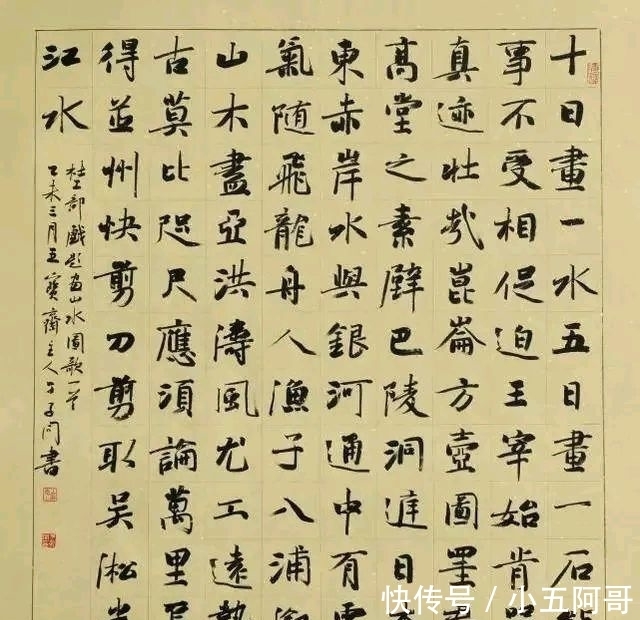 十日畫一水五日畫一石
事不受相促迫王宰始肯
真迹壯哉崑崙方壺圖
高堂之素壁巴陵洞庭日
東赤岸水與銀河通中有
氣随飛龍舟人漁子入浦
山木盡亞洪濤風尤工遠
古莫比咫尺應須論萬里
得並州快剪刀剪取吴淞
江水
杜工部戲題画山水圖歌一首
乙未三月五寶齋主人書
快传号 / 小五阿哥